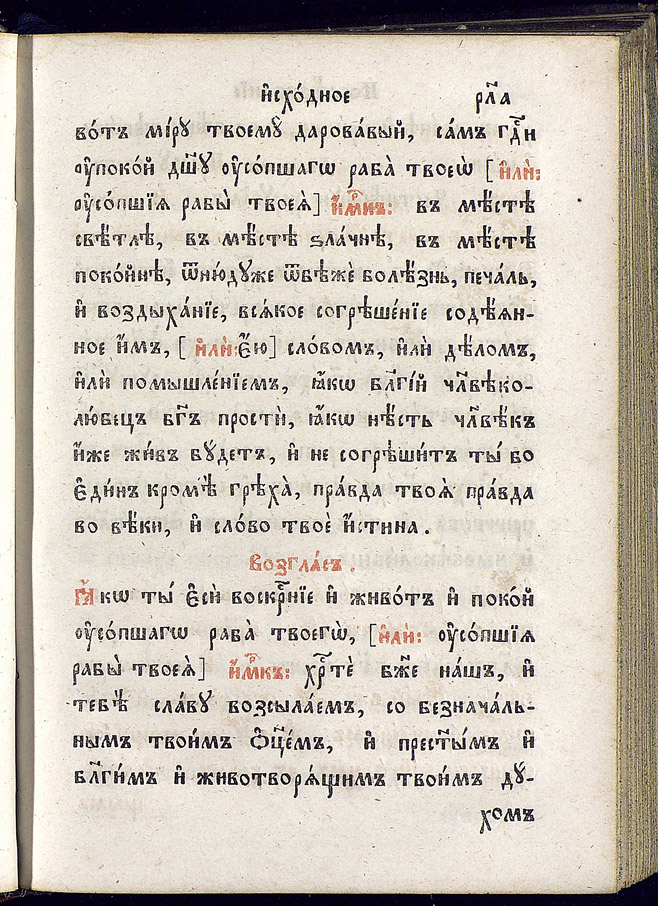 и҆схо́дное рл҃а
во́тъ мі́рꙋ твоемꙋ̀ дарова́вый, са́мъ гдⷭ҇и
ᲂу҆поко́й дш҃ꙋ ᲂу҆со́пшагѡ раба̀ твоегѡ̀ [и҆лѝ:
ᲂу҆со́пшїѧ рабы̀ твоеѧ̀] и҆́мⷬ҇къ: въ мѣ́стѣ
свѣ́тлѣ, въ мѣ́стѣ ѕла́чнѣ, въ мѣ́стѣ
поко́йнѣ, ѿню́дꙋже ѿбѣжѐ болѣ́знь, печа́ль,
и҆ воздыха́нїе, всѧ́кое согрѣше́нїе содѣ́ѧн-
ное и҆́мъ, [и҆лѝ: є҆́ю] сло́вомъ, и҆лѝ дѣ́ломъ,
и҆лѝ помышле́нїемъ, ꙗ҆́кѡ бл҃гі́й чл҃вѣко-
лю́бецъ бг҃ъ простѝ, ꙗ҆́кѡ нѣ́сть чл҃вѣ́къ
и҆́же жи́въ бꙋ́детъ, и҆ не согрѣши́тъ ты́ бо
є҆ди́нъ кромѣ̀ грѣха̀, пра́вда твоѧ̀ пра́вда
во вѣ́ки, и҆ сло́во твоѐ и҆́стина.
Возгла́съ.
Ꙗ҆́кѡ ты́ є҆сѝ воскрⷭ҇нїе и҆ живо́тъ и҆ поко́й
ᲂу҆со́пшагѡ раба̀ твоегѡ̀, [и҆лѝ: ᲂу҆со́пшїѧ
рабы̀ твоеѧ̀] и҆́мⷬ҇къ: хрⷭ҇тѐ бж҃е на́шъ, и҆
тебѣ̀ сла́вꙋ возсыла́емъ, со безнача́ль-
нымъ твои́мъ ѻ҆ц҃е́мъ, и҆ прест҃ы́мъ и҆
бл҃ги́мъ и҆ животворѧ́щимъ твои́мъ дꙋ́-
хомъ